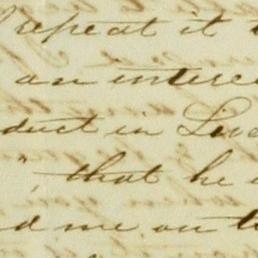 repeat it
an interc
duct in Luc
", that he
d me on t